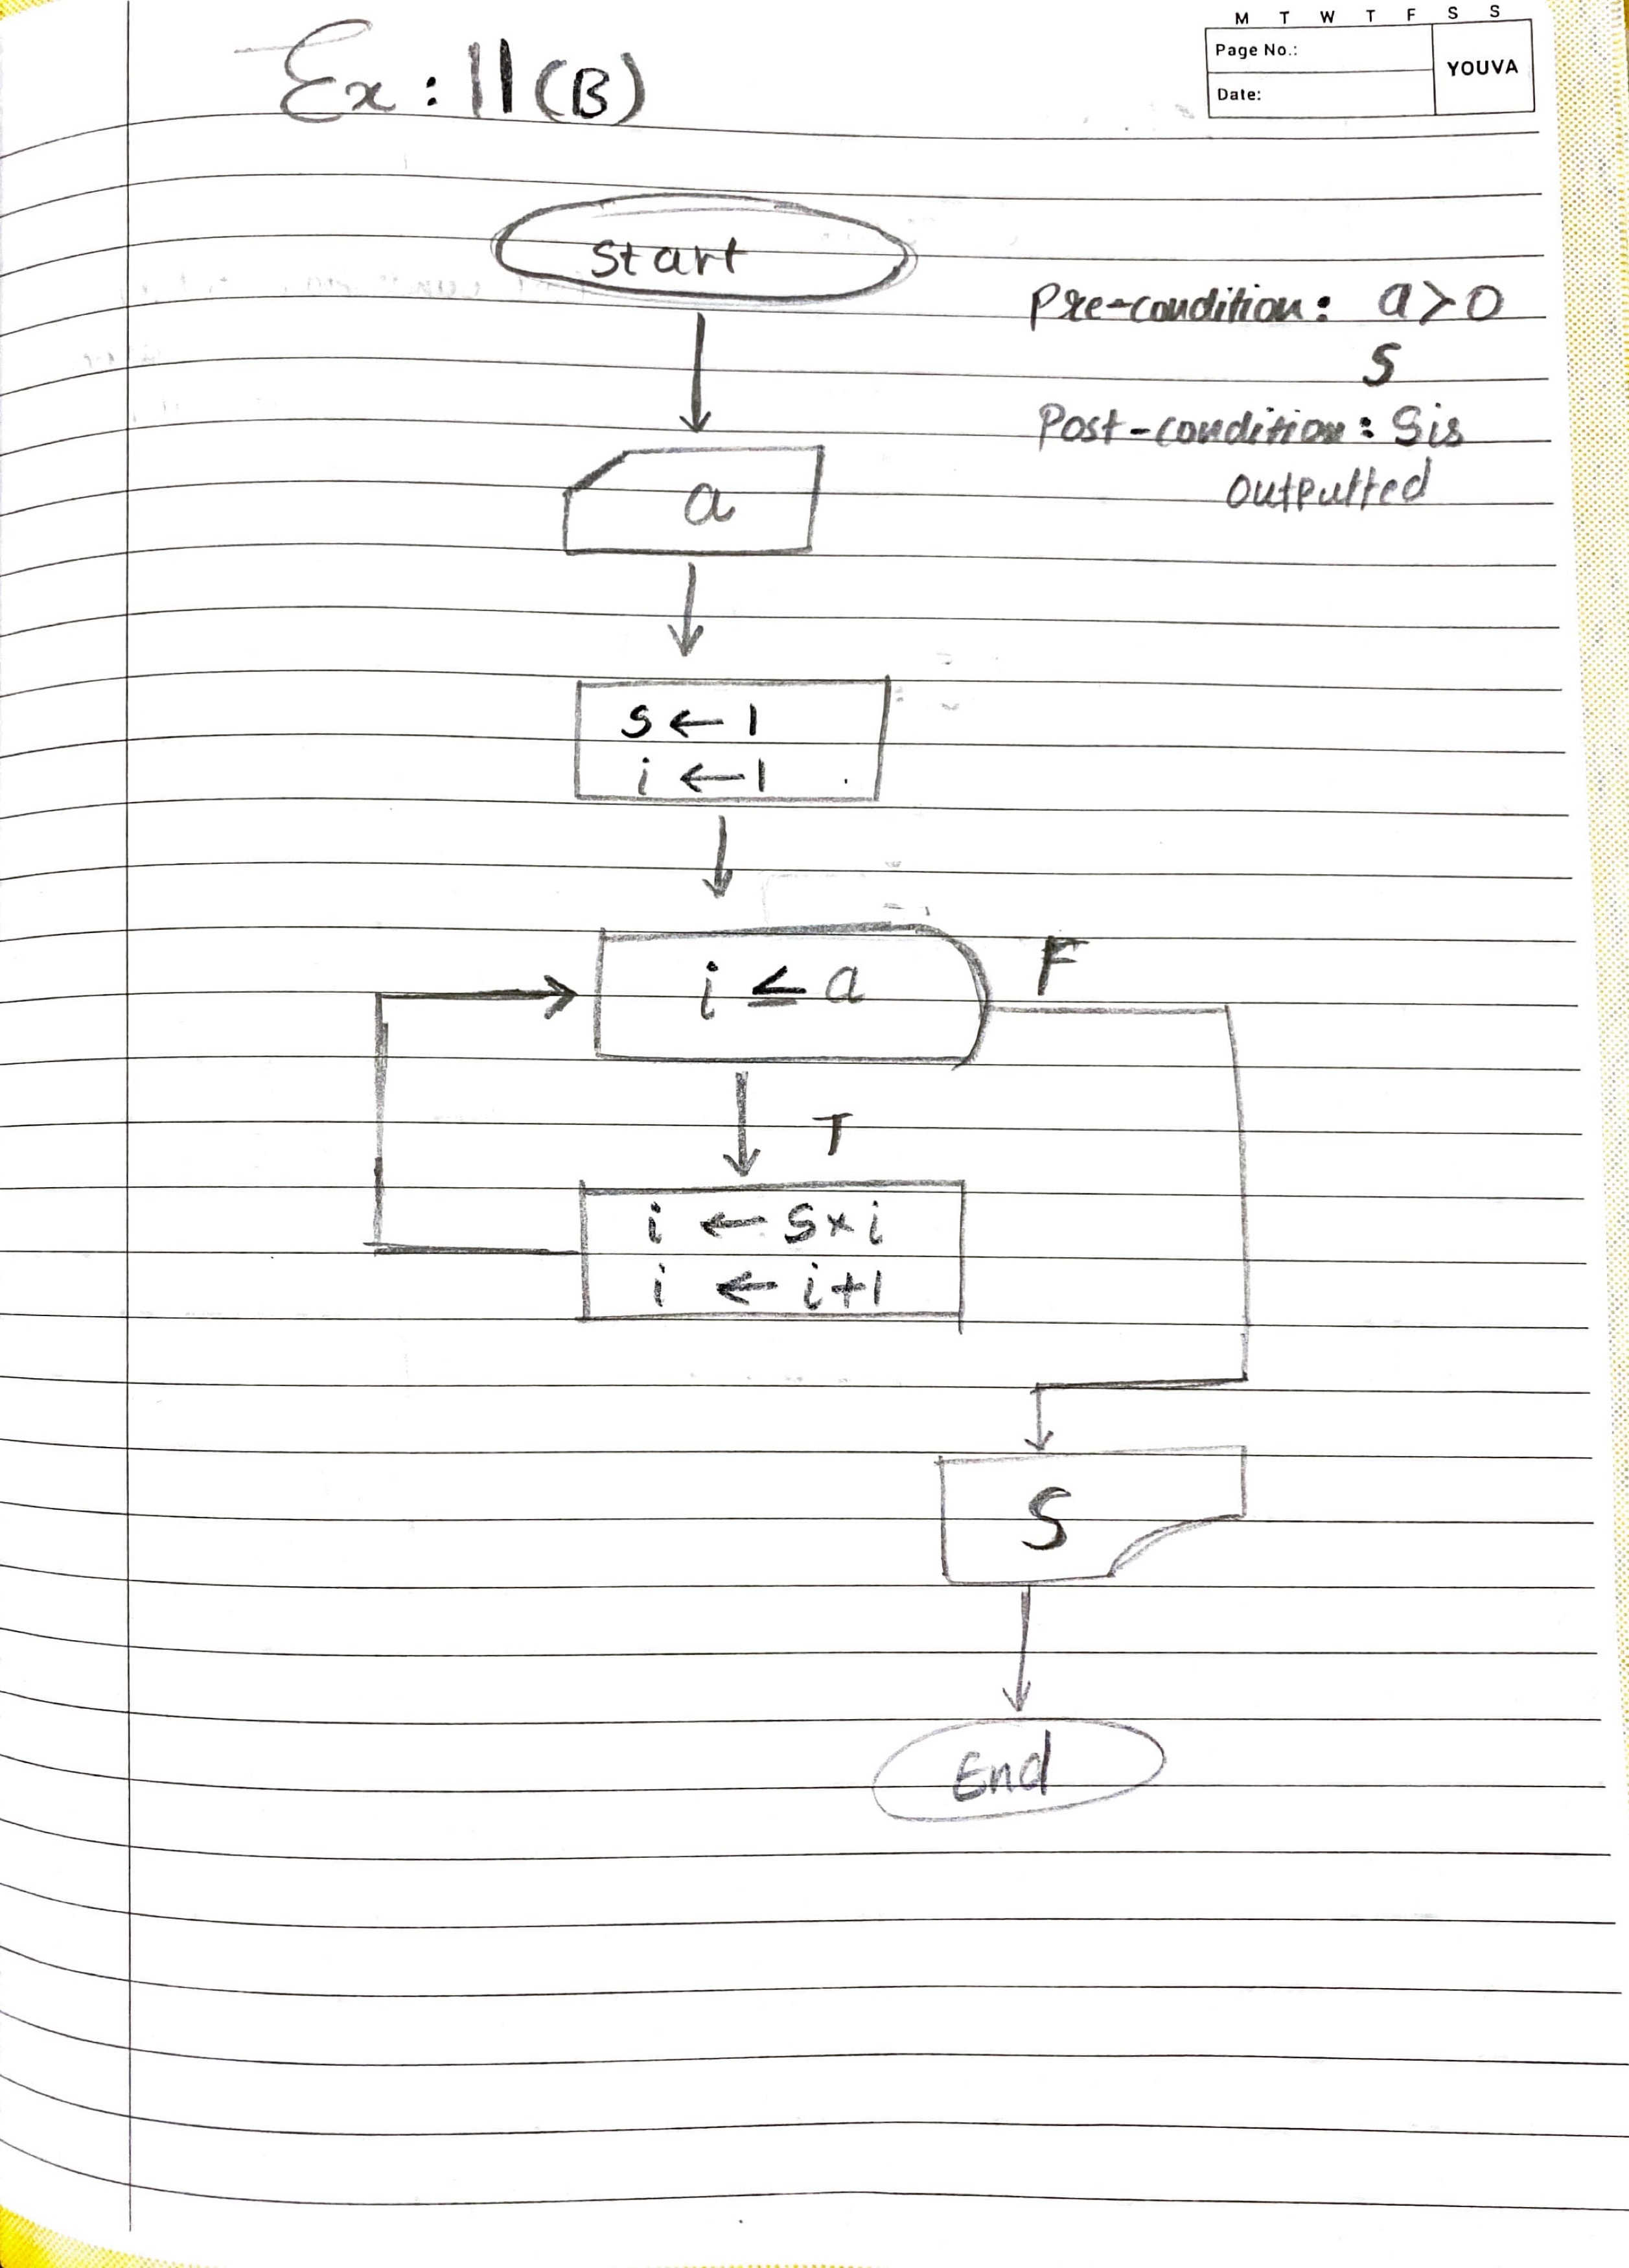 M T W T F S S
Page No.:
YOUVA
Date:
Ex: 11(B)
Start
Pre-condition: a>0
S
Post-condition: S is
outputted
a
s ← 1
i ← 1
i ≤ a
F
T
i ← s×i
i ← i+1
S
End